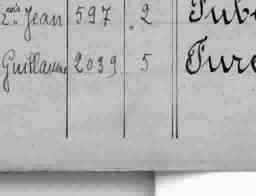 Jean 597 2 Tub
Guillaume 2039 5 Ture